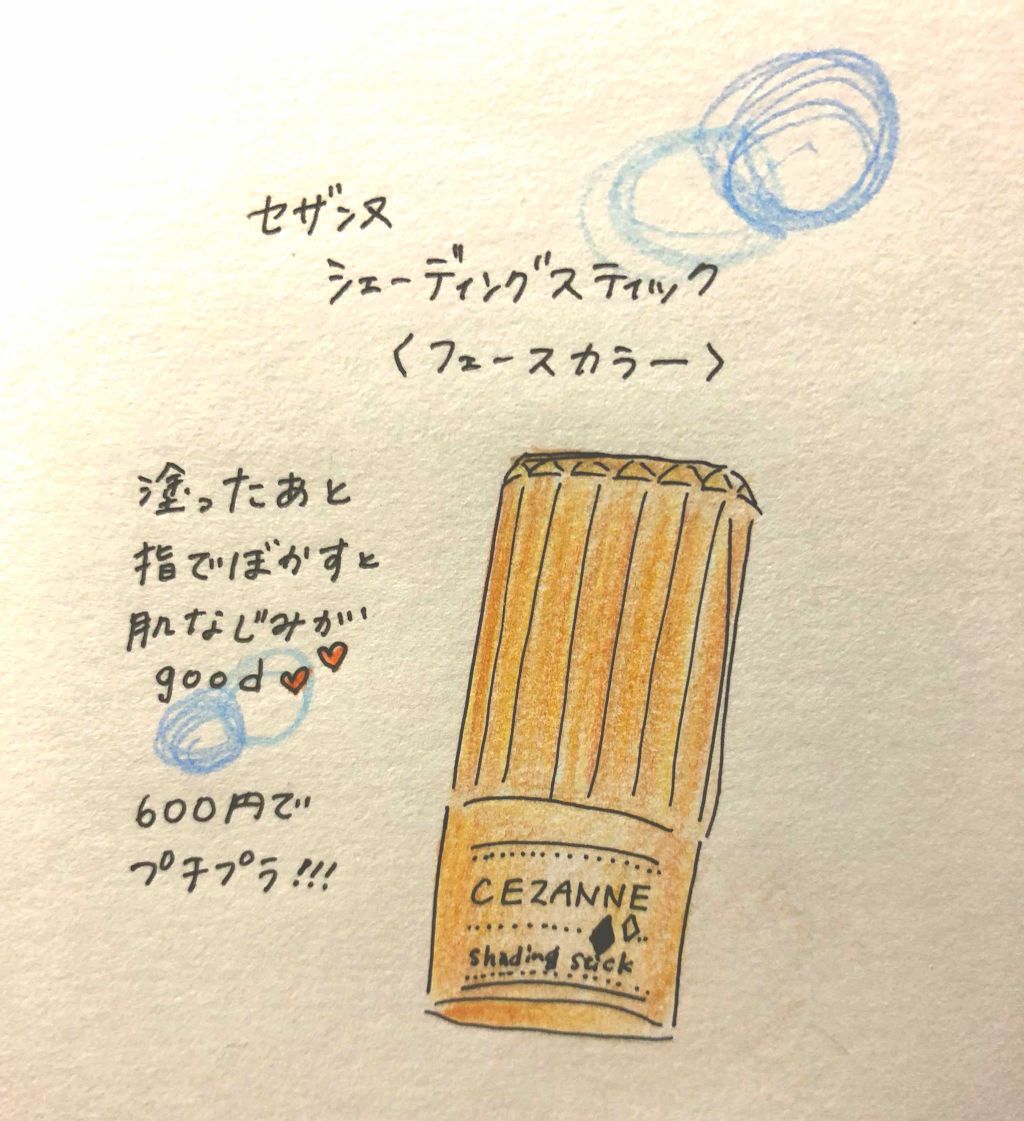 セザンヌ
シェーディングスティック
〈フェースカラー〉
塗ったあと
指でぼかすと
肌なじみが
good
600円で
プチプラ!!!
CEZANNE
shading stick